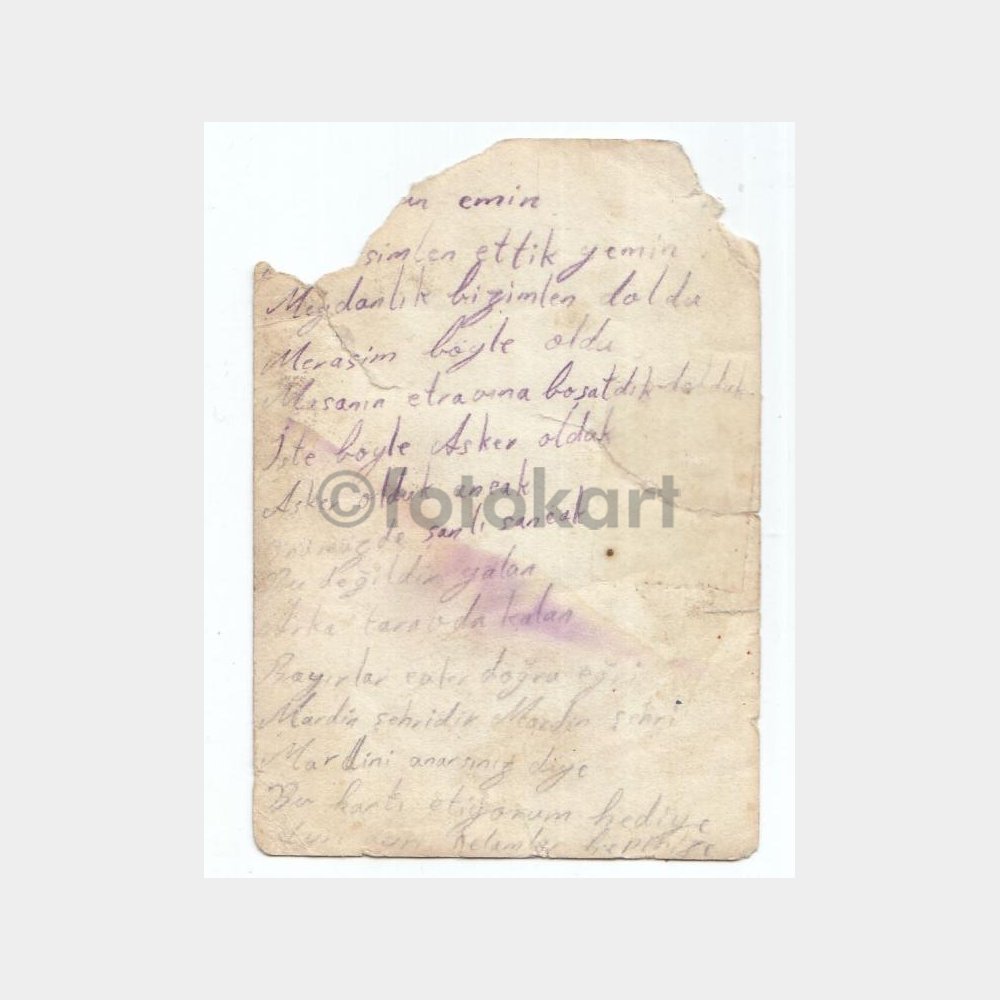 emin
simlen ettik yemin
Meydanlık bizimlen doldu
Merasim böyle oldu
Masanın etravına boşatdık
İşte böyle Asker olduk
Asker olduk ancak
şanlı sancak
Bu değildir yalan
Arka taravda kalan
Bayırlar doğru eğri
Mardin şehridir Mardin şehri
Mardini anarsınız diye
Bu kartı etiyorum hediye
selamlar
©fotokart